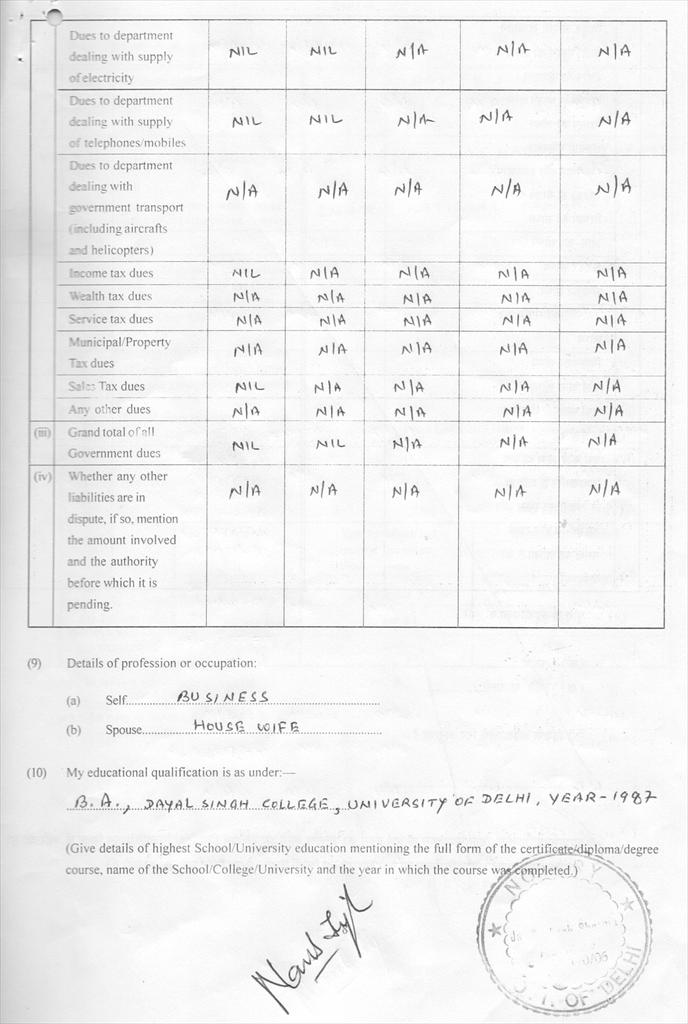 Dues to department
dealing with supply
of electricity
NIL NIL N/A N/A N/A
Dues to department
dealing with supply
of telephones/mobiles
NIL NIL N/A N/A N/A
Dues to department
dealing with
government transport
(including aircrafts
and helicopters)
N/A N/A N/A N/A N/A
Income tax dues NIL N/A N/A N/A N/A
Wealth tax dues N/A N/A N/A N/A N/A
Service tax dues N/A N/A N/A N/A N/A
Municipal/Property
Tax dues
N/A N/A N/A N/A N/A
Sales Tax dues NIL N/A N/A N/A N/A
Any other dues N/A N/A N/A N/A N/A
(iii) Grand total of all
Government dues
NIL NIL N/A N/A N/A
(iv) Whether any other
liabilities are in
dispute, if so, mention
the amount involved
and the authority
before which it is
pending.
N/A N/A N/A N/A N/A
(9) Details of profession or occupation:
(a) Self BUSINESS
(b) Spouse HOUSE WIFE
(10) My educational qualification is as under:—
B.A., DAYAL SINGH COLLEGE, UNIVERSITY OF DELHI, YEAR-1987
(Give details of highest School/University education mentioning the full form of the certificate/diploma/degree
course, name of the School/College/University and the year in which the course was completed.)
NOTARY
OF DELHI